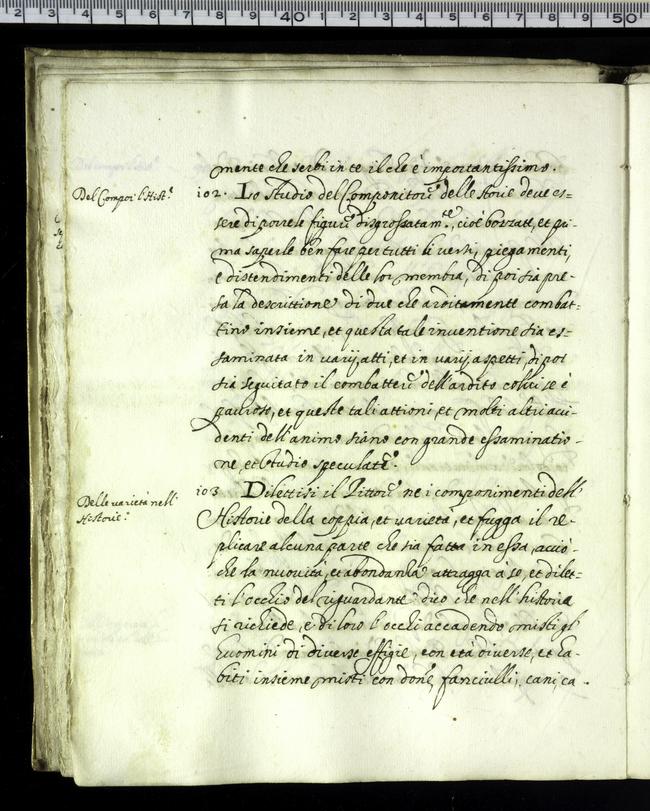 mente che serbi in te il che è importantissimo.
Del Compor l'Hist.e
102. Lo studio del Componitore delle storie deve es-
sere di porre le figure disgrossatam.te, cioè bozzate, et pri-
ma saperle ben fare per tutti li versi, piegamenti,
e distendimenti delle lor membra, di poi sia pre-
sa la descrittione di due che arditamente combat-
tino insieme, et questa tale inventione sia es-
saminata in varij atti, et in varij aspetti, di poi
sia seguitato il combattere dell'ardito col
pauroso, et queste tali attioni, et molti altri acci-
denti dell'animo siano con grande essaminatio-
ne, et studio speculate.
Delle varietà nell'
Historie.
103 Dilettisi il Pittore ne i componimenti dell'
Historie della coppia, et varietà, et fugga il re-
plicare alcuna parte che sia fatta in essa, acciò-
che la nuovità, et abondanza attragga à se, et dilet-
ti l'occhio del riguardante dico che nell'historia
si richiede, e di loro l'occhi accadendo misti gl'
huomini di diverse effigie, con età diverse, et ha-
biti insieme misti con done, fanciulli, cani, ca-